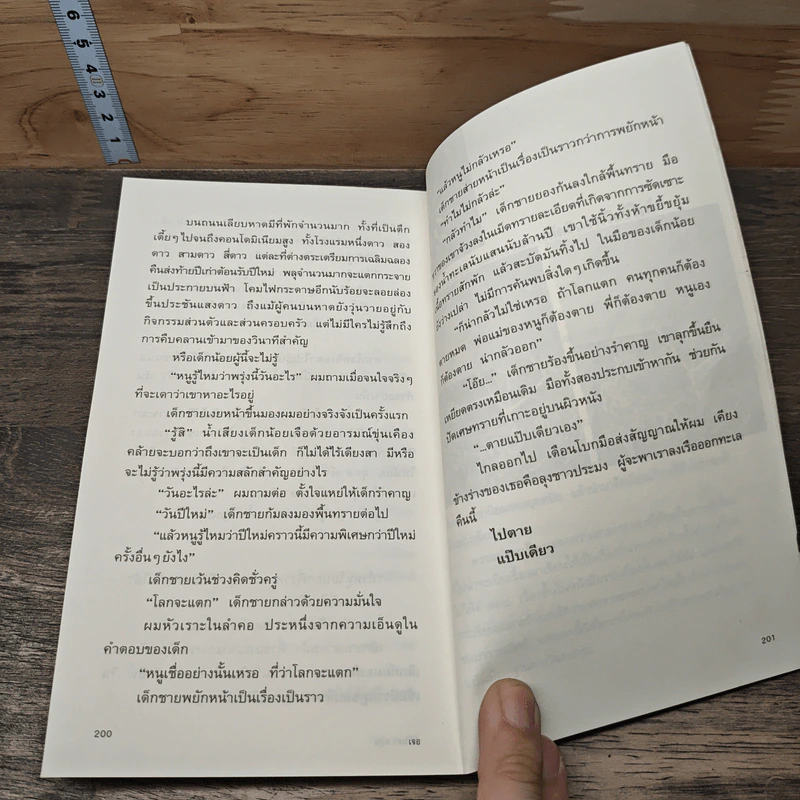 6
5
4
3
2
1
บนถนนเลียบหาดมีที่พักจำนวนมาก ทั้งที่เป็นตึก
เตี้ยๆ ไปจนถึงคอนโดมิเนียมสูง ทั้งโรงแรมหนึ่งดาว สอง
ดาว สามดาว สี่ดาว แต่ละที่ต่างตระเตรียมการเฉลิมฉลอง
คืนส่งท้ายปีเก่าต้อนรับปีใหม่ พลุจำนวนมากจะแตกกระจาย
เป็นประกายบนฟ้า โคมไฟกระดาษอีกนับร้อยจะลอยล่อง
ขึ้นประชันแสงดาว ถึงแม้ผู้คนบนหาดยังวุ่นวายอยู่กับ
กิจกรรมส่วนตัวและส่วนครอบครัว แต่ไม่มีใครไม่รู้สึกถึง
การคืบคลานเข้ามาของวินาทีสำคัญ
หรือเด็กน้อยผู้นี้จะไม่รู้
“หนูรู้ไหมว่าพรุ่งนี้วันอะไร” ผมถามเมื่อจนใจจริงๆ
ที่จะเดาว่าเขาหาอะไรอยู่
เด็กชายเงยหน้าขึ้นมองผมอย่างจริงจังเป็นครั้งแรก
“รู้สิ” น้ำเสียงเด็กน้อยเจือด้วยอารมณ์ขุ่นเคือง
คล้ายจะบอกว่าถึงเขาจะเป็นเด็ก ก็ไม่ได้ไร้เดียงสา มีหรือ
จะไม่รู้ว่าพรุ่งนี้มีความสลักสำคัญอย่างไร
“วันอะไรล่ะ” ผมถามต่อ ตั้งใจแหย่ให้เด็กรำคาญ
“วันปีใหม่” เด็กชายก้มลงมองพื้นทรายต่อไป
“แล้วหนูรู้ไหมว่าปีใหม่คราวนี้มีความพิเศษกว่าปีใหม่
ครั้งอื่นๆ ยังไง”
เด็กชายเว้นช่วงคิดชั่วครู่
“โลกจะแตก” เด็กชายกล่าวด้วยความมั่นใจ
ผมหัวเราะในลำคอ ประหนึ่งจากความเอ็นดูใน
คำตอบของเด็ก
“หนูเชื่ออย่างนั้นเหรอ ที่ว่าโลกจะแตก”
เด็กชายพยักหน้าเป็นเรื่องเป็นราว
200
เจอ
“แล้วหนูไม่กลัวเหรอ”
เด็กชายส่ายหน้าเป็นเรื่องเป็นราวกว่าการพยักหน้า
“ทำไมไม่กลัวล่ะ”
“กลัวทำไม” เด็กชายยองก้นลงใกล้พื้นทราย มือ
ของเขาจ้วงลงในเม็ดทรายละเอียดที่เกิดจากการซัดเซาะ
น้ำทะเลนับแสนนับล้านปี เขาใช้นิ้วทั้งห้าขยี้ขยุ้ม
ทรายสักพัก แล้วสะบัดมันทิ้งไป ในมือของเด็กน้อย
ว่างเปล่า ไม่มีการค้นพบสิ่งใดๆ เกิดขึ้น
“ก็น่ากลัวไม่ใช่เหรอ ถ้าโลกแตก คนทุกคนก็ต้อง
ตายหมด พ่อแม่ของหนูก็ต้องตาย พี่ก็ต้องตาย หนูเอง
ก็ต้องตาย น่ากลัวออก”
“โอ๊ย...” เด็กชายร้องขึ้นอย่างรำคาญ เขาลุกขึ้นยืน
เหยียดตรงเหมือนเดิม มือทั้งสองประกบเข้าหากัน ช่วยกัน
ปัดเศษทรายที่เกาะอยู่บนผิวหนัง
“...ตายแป๊บเดียวเอง”
ไกลออกไป เดือนโบกมือส่งสัญญาณให้ผม เคียง
ข้างร่างของเธอคือลุงชาวประมง ผู้จะพาเราลงเรือออกทะเล
คืนนี้
ไปตาย
แป๊บเดียว
201